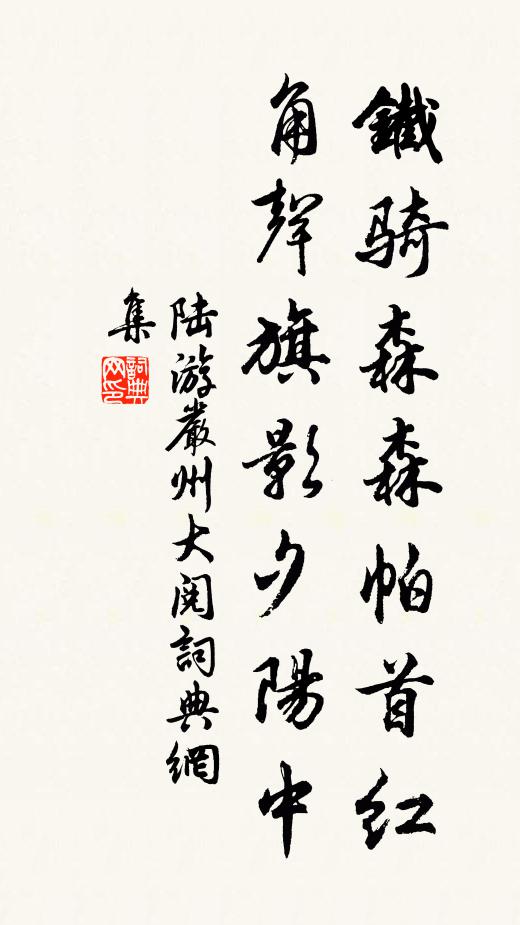 鐵騎森森帕首紅
角聲旗影夕陽中
陸游嚴州大閱詞典網
集
詞典网印